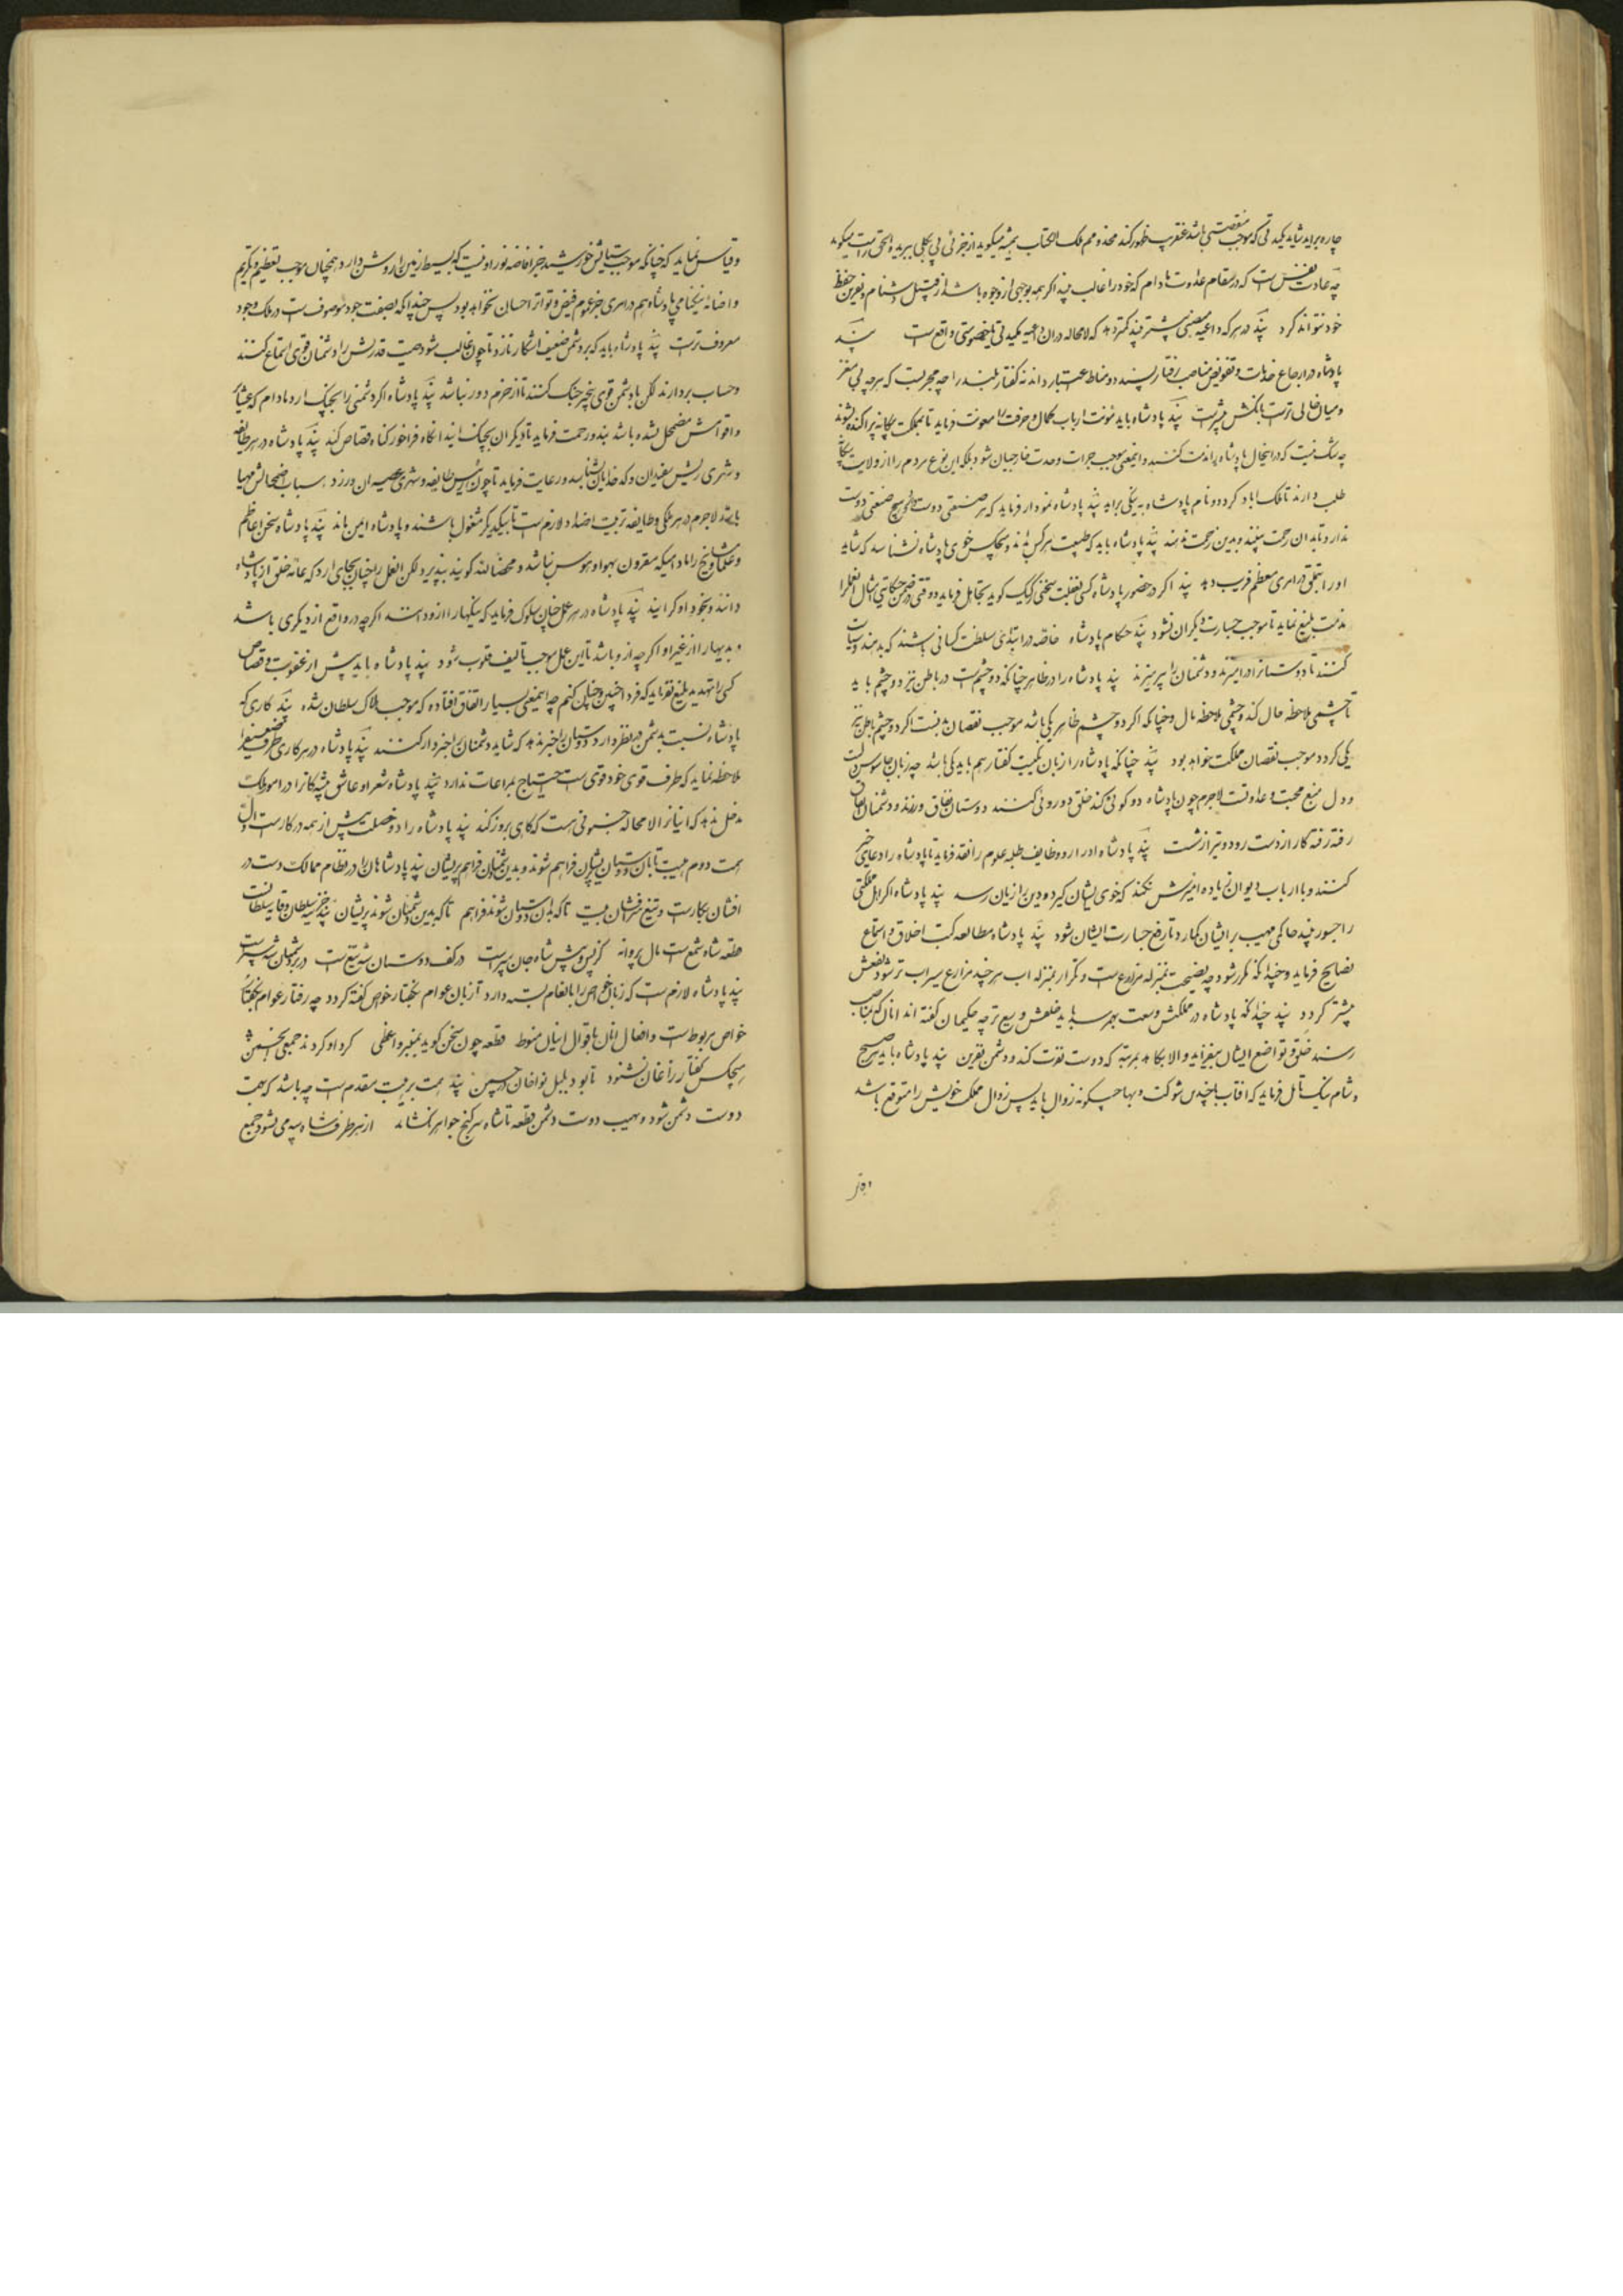 چاره براید شاید یکدلی که موجب منقصتی باشد عنقریب ظهور کند مخدوم فلک الجناب همیشه میگوید از جزئی پی بکلی ببرید و الحق راست میگوید
چه عادت نفس است که در مقام عداوت مادام که خود را غالب بیند اگر همه بوجهی از وجوه باشد از قتل و شنام و نفرین حفظ
خود نتواند کرد پند در هر که داعیه منصبی بیشتر بیند کمتر دهد که لامحاله در ان داعیه واقع است پند
پادشاه در ارجاع خدمات و تفویض مناصب رفتار پسندد و مناط اعتبار داند نه گفتار بلند را چه مجرب است که هر چه بی مغز
و میان خالی تر است بانکش بیشتر است پند پادشاه باید مؤنت ارباب کمال و حرفت را معونت فرماید تا بمملکت بیگانه پراکنده نشوند
چه شک نیست که در انحال پادشاه را مذمت کنند و اینمعنی موجب جرات و حدت خارجیان شود بلکه این نوع مردم را از ولایت بیگانه
طلب دارند تا ملک اباد گردد و نام پادشاه به نیکی براید پند پادشاه نمودار فرماید که هر صنعتی دوست دارد هیچ صنعتی دوست
ندارد تا بدان رحمت بینند و بدین زحمت ندهند پند پادشاه باید که طبیعت هر کس بداند و هیچکس خوی پادشاه نشناسد که شاید
او را بتملق در امری معظم فریب دهد پند اگر در حضور پادشاه کسی بغفلت سخنی رکیک گوید تجاهل فرماید و وقتی در ضمن حکایتی امثال انفعل را
مذمت بلیغ نماید تا موجب جسارت دیگران نشود پند حکام پادشاه خاصه در ابتدای سلطنت کسانی باشند که بد و سیاست
کنند تا دوستان را درامیزند و دشمنان را بپرهیزند پند پادشاه را در ظاهر چنانکه دو چشم است در باطن نیز دو چشم باید
تا چشمی ملاحظه حال کند و چشمی ملاحظه مال و چنانکه اگر دو چشم ظاهر یکی باشد موجب نقصان بدنست اگر دو چشم باطن نیز
یکی گردد موجب نقصان مملکت خواهد بود پند چنانکه پادشاه را زبان یکیست گفتار هم باید یکی باشد چه زبان جاسوس دلست
و دل منبع محبت و عداوتست لاجرم چون پادشاه دو گوئی کند خلق دوروئی کنند دوستان نفاق ورزند و دشمنان اتفاق
رفته رفته کار از دست رود و تیر از شست پند پادشاه ادرار و وظایف طلبه علوم را نقد فرماید تا پادشاه را دعای خیر
کنند و با ارباب دیوان زیاده امیزش نکند که خوی ایشان گیرد و دین را زیان رسد پند پادشاه اگر اهل مملکتی
را جسور بیند حاکمی مهیب بر ایشان گمارد تا رفع جسارت ایشان شود پند پادشاه مطالعه کتب اخلاق و استماع
نصایح فرماید و چندانکه مکرر شود چه نصیحت بمنزله مزارع است و تکرار بمنزله اب هر چند مزارع سیراب تر شود نفعش
بیشتر گردد پند چندانکه پادشاه در مملکتش وسعت بهم رسد باید خلقش وسیع تر چه حکیمان گفته اند انان که بمناصب
رسند خلق و تواضع ایشان بیفزاید و الا بکاهد بمرتبه که دوست نفرت کند و دشمن نفرین پند پادشاه باید هر صبح
و شام نیک تأمل فرماید که افتاب با چندین شوکت و بها چگونه زوال یابد پس زوال ملک خویش را متوقع باشد
وقیاس نماید که چنانکه موجب ستایش خورشید جز افاضه نور او نیست که بسیط زمین را روشن دارد همچنان موجب تعظیم و تکریم
و اضائه نیکنامی پادشاه هم در امری جز عموم فیض و تواتر احسان نخواهد بود پس چندانکه بصفت جود موصوفست در ملک وجود
معروف تر است پند پادشاه باید که بر دشمن ضعیف اشکار تازد تا چون غالب شود هیبت قدرتش را دشمنان قوی استماع کنند
و حساب بردارند لکن با دشمن قوی پنجه جنگ کنند تا از حزم دور نباشد پند پادشاه اگر دشمنی را بچنگ ارد مادام که عشایر
و اقوامش مضمحل نشده باشد بند و رحمت فرماید تا دیگران بچنگ ایند انگاه فراخور گناه قصاص کند پند پادشاه در هر طایفه
و شهری ریش سفیدان و کدخدایان شناسد و رعایت فرماید تا چون رئیس طایفه و شهری عصیان ورزد اسباب اضمحالش مهیا
باشد لاجرم در هر ملکی و طایفه تربیت اضداد لازم است تا بیکدیگر مشغول باشند و پادشاه ایمن ماند پند پادشاه سخن اعاظم
و علما و مشایخ را مادامیکه مقرون بهوا و هوس نباشد و محضا لله گویند بپذیرد ولکن انفعل را چنان بجای ارد که عامه خلق از پادشاه
دانند و بخود او گرایند پند پادشاه در هر عمل چنان سلوک فرماید که نیکیها را از او دانند اگر چه در واقع از دیگری باشد
و بدیها را از غیر او اگر چه از او باشد تا این عمل موجب تألیف قلوب شود پند پادشاه باید پیش از عقوبت و قصاص
کسی را تهدید بلیغ نفرماید که فردا چنین و چنان کنم چه اینمعنی بسیار اتفاق افتاده که موجب هلاک سلطان شده پند کاری که
پادشاه نسبت بدشمن در نظر دارد دوستان را خبر ندهد که شاید دشمنان را خبردار کنند پند پادشاه در هر کاری طرف ضعیف را
ملاحظه نماید که طرف قوی خود قوی است احتیاج بمراعات ندارد پند پادشاه شعرا و عاشق پیشگانرا در امور ملک
مدخل ندهد که اینانرا لامحاله جنونی است که گاهی بروز کند پند پادشاه را دو خصلت بیش از همه در کار است اول
همت دوم هیبت تا بان دوستان پریشان فراهم شوند و بدین دشمنان فراهم پریشان پند پادشاهان را در نظام ممالک دست زر
افشان بکار است و تیغ سرافشان بیت تا که بدان دوستان شوند فراهم تا که بدین دشمنان شوند پریشان
قطعه شاه شمع است مال پروانه در کف دوستان شه تیغ است
پند پادشاه را لازم است که زبان خواص را بانعام بسته دارد تا زبان عوام بگفتار خواص گفته گردد چه رفتار عوام بگفتار
خواص مربوط است و افعال انان باقوال اینان منوط قطعه چون سخن گوید بمنبر واعظی گرد او گردند جمعی
هیچکس گفتار زاغان نشنود تا بود بلبل نواخوان در چمن پند همت بر هیبت مقدم است چه باشد که همت
دوست دشمن شود و هیبت دوست دشمن قطعه تا شاه سر گنج جواهر نگشاید از هر طرف سپه می نشود جمع